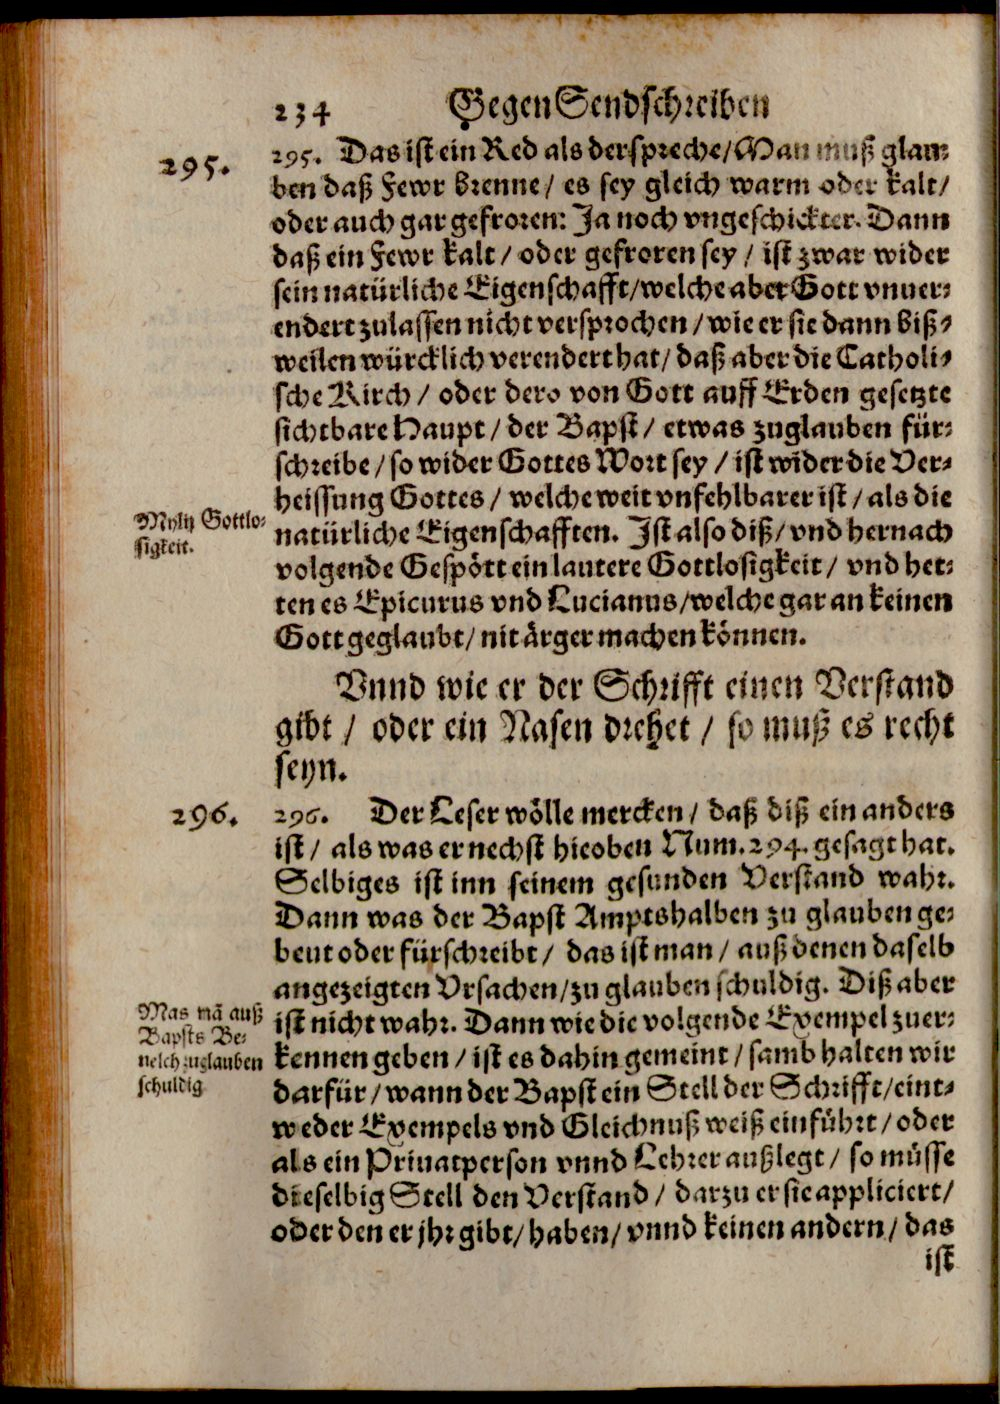 234 GegenSendschreiben
295.
295. Das ist ein Red als der spreche/ Man muß glau⸗
ben daß Fewr brenne/ es sey gleich warm oder kalt/
oder auch gar gefroren: Ja noch vngeschickter. Dann
daß ein Fewr kalt/ oder gefroren sey/ ist zwar wider
sein natürliche Eigenschafft/ welche aber Gott vnuer⸗
endert zulassen nicht versprochen/ wie er sie dann biß⸗
weilen würcklich verendert hat/ daß aber die Catholi⸗
sche Kirch/ oder dero von Gott auff Erden gesetzte
sichtbare Haupt/ der Bapst/ etwas zuglauben für⸗
schreibe/ so wider Gottes Wort sey/ ist wider die Ver⸗
heissung Gottes/ welche weit vnfehlbarer ist/ als die
Mylij Gottlo⸗
sigkeit.
natürliche Eigenschafften. Ist also diß/ vnd hernach
volgende Gespött ein lautere Gottlosigkeit/ vnd het⸗
ten es Epicurus vnd Lucianus/ welche gar an keinen
Gott geglaubt/ nit ärger machen können.
Vnnd wie er der Schrifft einen Verstand
gibt/ oder ein Nasen drehet/ so muß es recht
seyn.
296.
296. Der Leser wölle mercken/ daß diß ein anders
ist/ als was er nechst hieoben Num. 294. gesagt hat.
Selbiges ist inn seinem gesunden Verstand wahr.
Dann was der Bapst Amptshalben zu glauben ge⸗
beut oder fürschreibt/ das ist man/ auß denen daselb
angezeigten Vrsachen/ zu glauben schuldig. Diß aber
Was mā auß
Bapsts Be⸗
uelch zuglauben
schuldig
ist nicht wahr. Dann wie die volgende Exempel zuer⸗
kennen geben/ ist es dahin gemeint/ samb halten wir
darfür/ wann der Bapst ein Stell der Schrifft/ eint⸗
weder Exempels vnd Gleichnuß weiß einführt/ oder
als ein Priuatperson vnnd Lehrer außlegt/ so müsse
dieselbig Stell den Verstand/ darzu er sie appliciert/
oder den er jhr gibt/ haben/ vnnd keinen andern/ das
ist